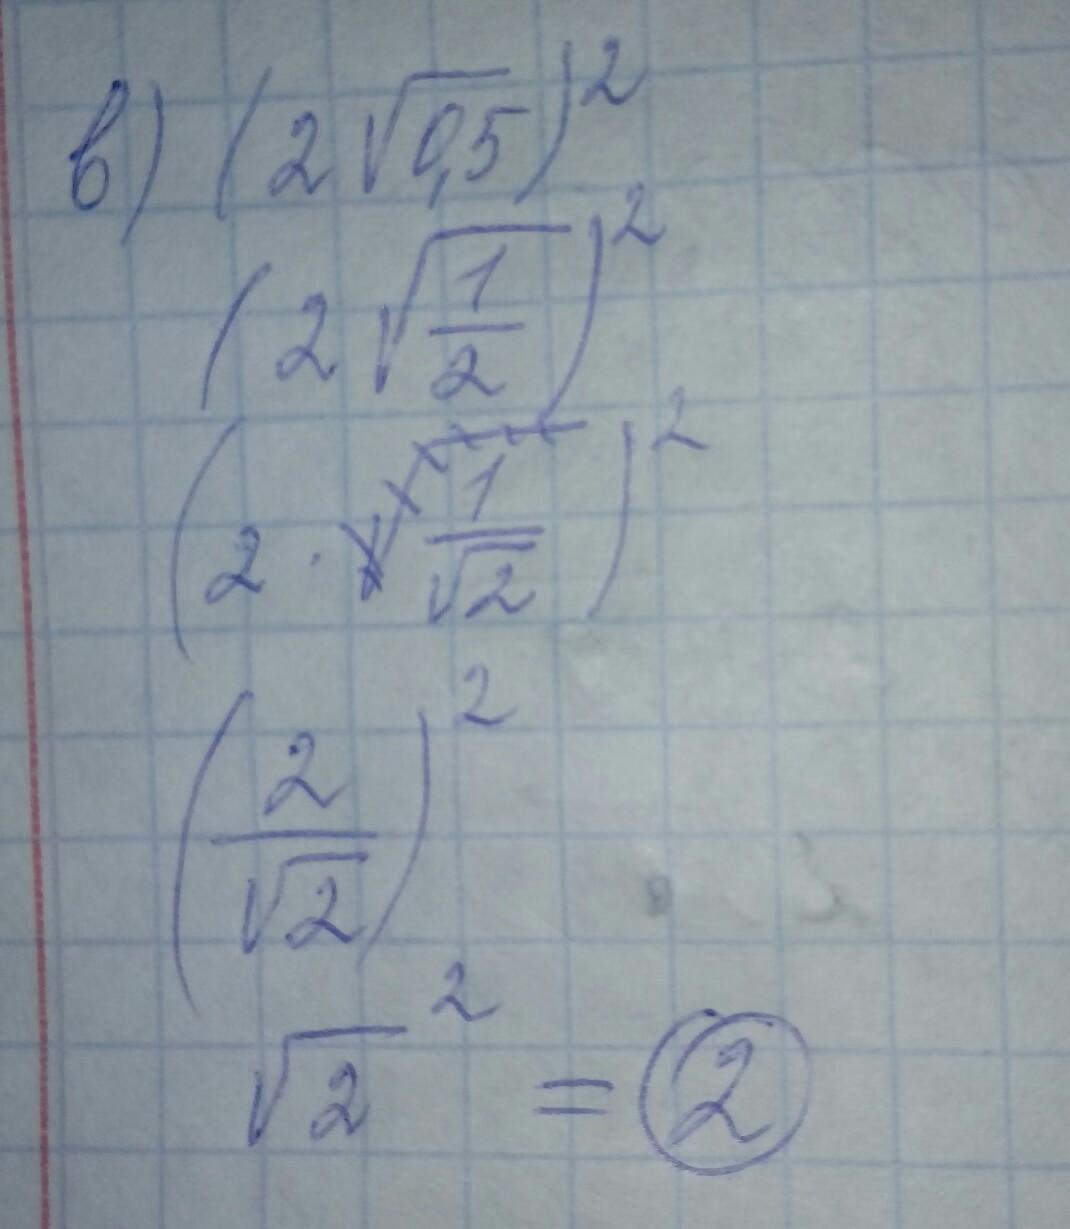 в) (2√0,5)²
(2√1/2)²
(2 · 1/√2)²
(2/√2)²
√2² = 2